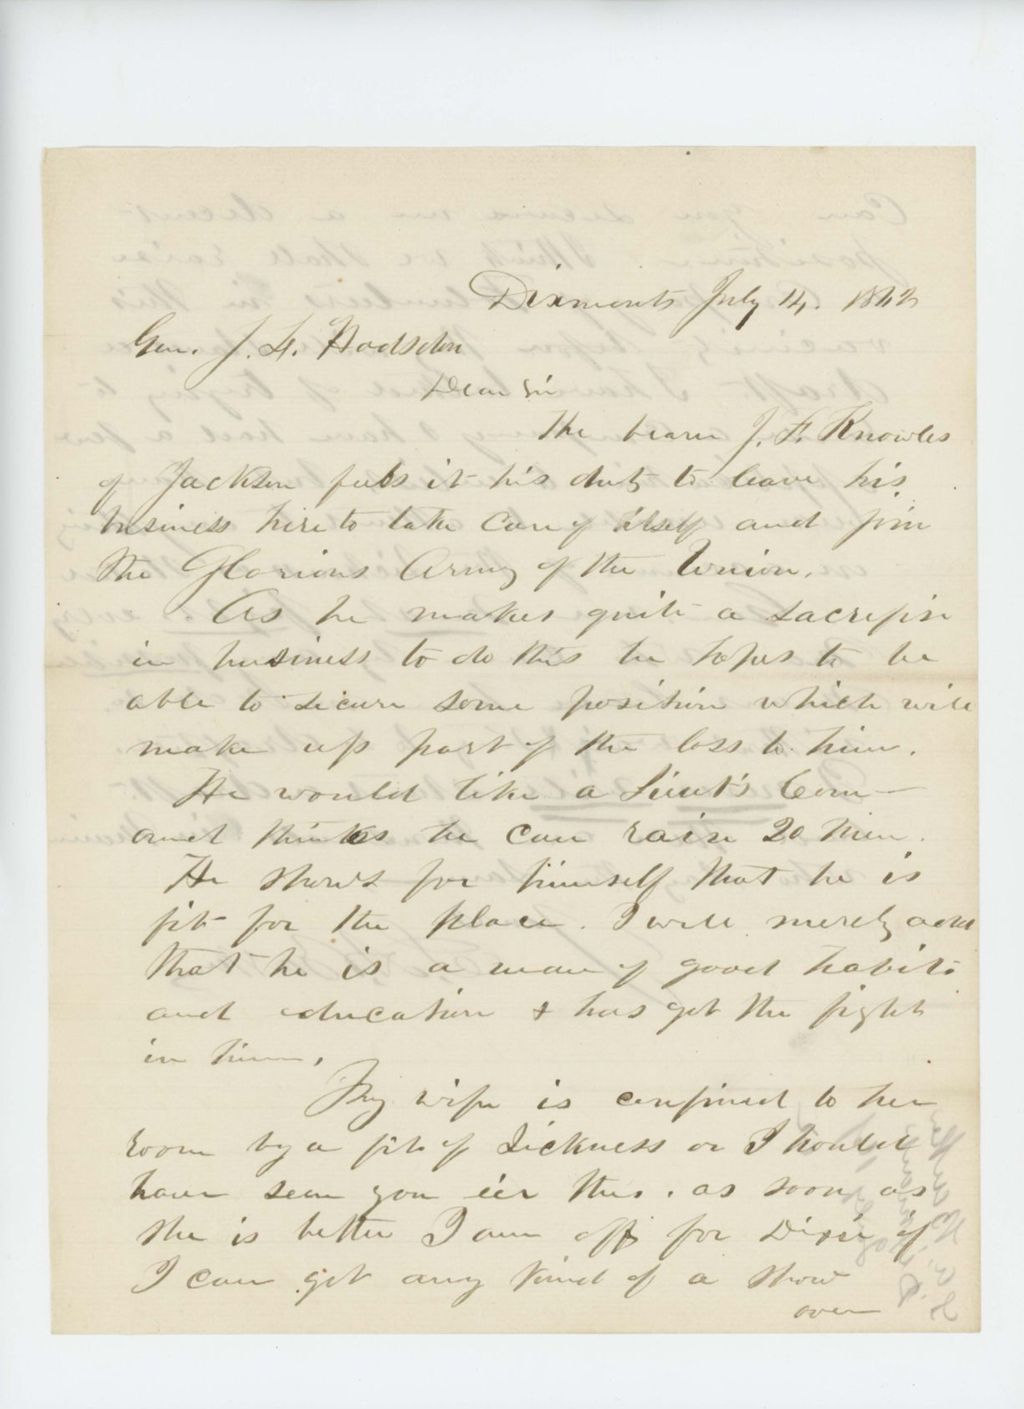 Dixmont July 14. 1862
Gen. J. L. Hodsdon
Dear Sir
The bearer J. F. Knowles
of Jackson feels it his duty to leave his
business here to take care of itself and join
the Glorious Army of the Union.
As he makes quite a sacrifise
in business to do this he hopes to be
able to secure some position which will
make up part of the loss to him.
He would like a Lieut's Com—
and thinks he can raise 20 men.
He shows for himself that he is
fit for the place. I will merely add
that he is a man of good habits
and education & has got the fight
in him.
My wife is confined to her
room by a fit of sickness or I should
have seen you e'er this. as soon as
she is better I am off for Dixie if
I can get any kind of a show
over